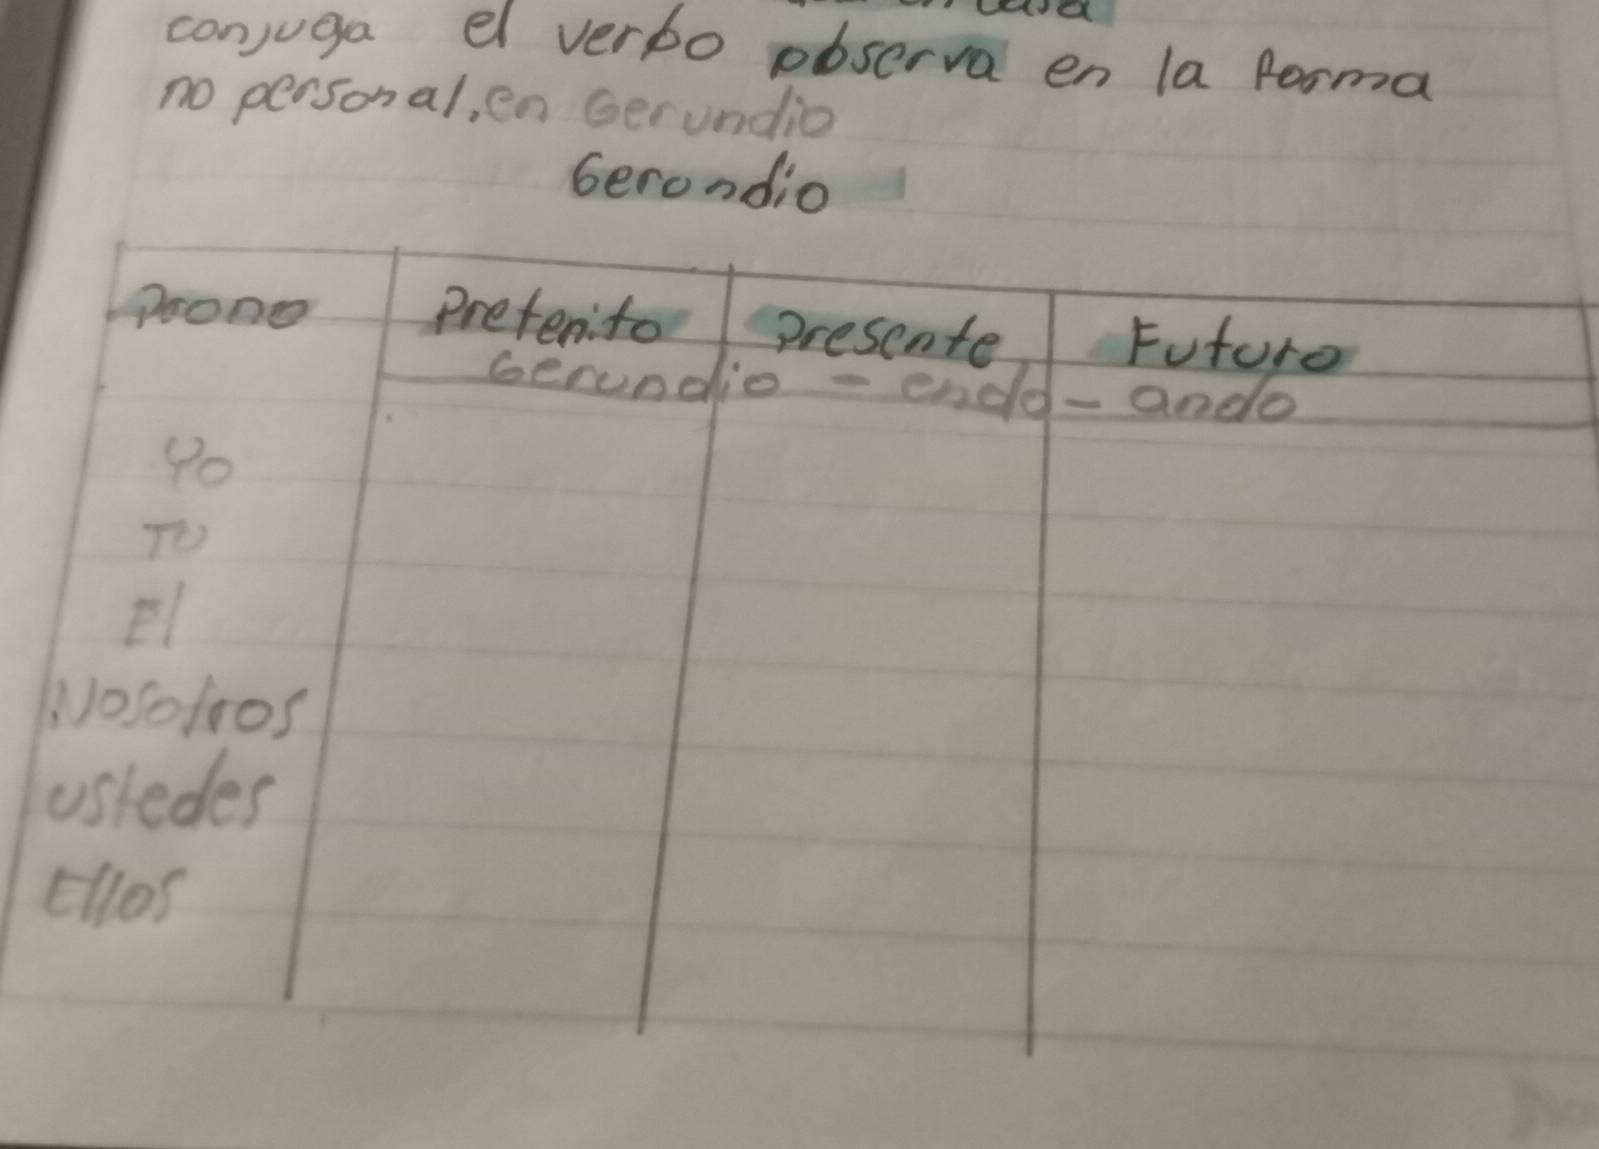 conjuga el verbo observa en la forma
no personal, en Gerundio
Gerondio
Prono Preterito Presente Futuro
Gerundio - endo - ando
Yo
Tu
El
Nosotros
ustedes
Ellos